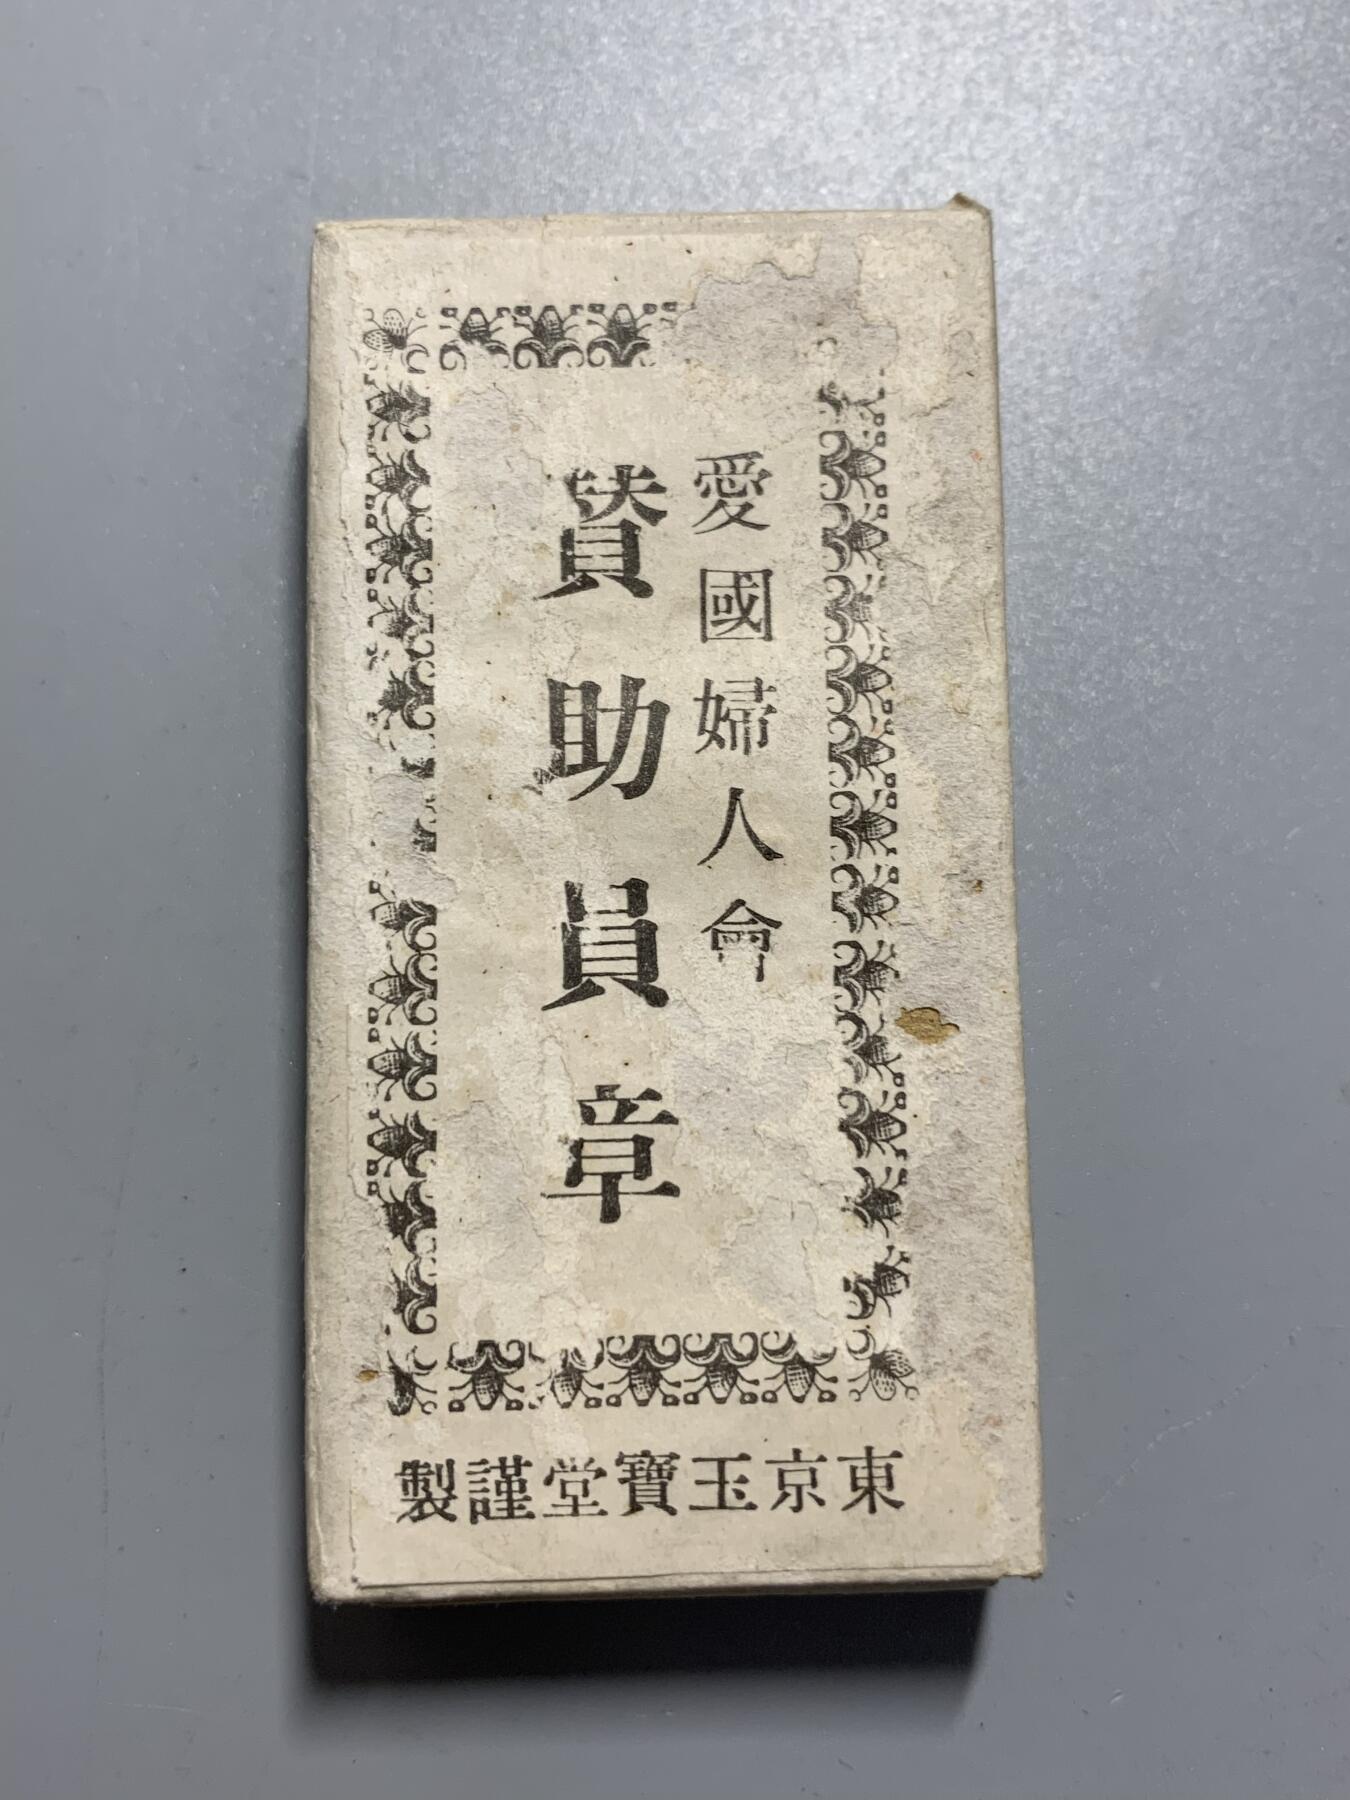 愛國婦人會
賛助員章
東京玉寶堂謹製